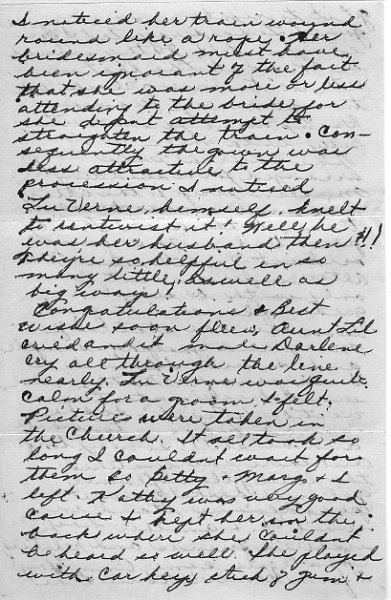 I noticed her train wound
round like a rope. Her
bridesmaid must have
been ignorant of the fact
that she was more or less
attending to the bride for
she didn't attempt to
straighten the train. Con-
sequently the gown was
less attractive to the
procession I noticed
LuVerne, himself, knelt
to rentwist it! Well, he
was her husband then
They're so helpful in so
many little, as well as
big ways!
Congatulations & Best
wishe soon flew, Aunt Lil
cried and it made Darlene
cry all through the line
nearly. LuVerne was quite
calm for a groom I felt.
Pictures were taken in
the Church. It all took so
long I couldn't wait for
them so Betty & Marg & I
left. Kathy was very good
cause I kept her in the
back where she couldn't
be heard so well. She played
with car keys, stick of gum &